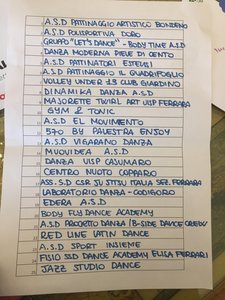 A.S.D PATTINAGGIO ARTISTICO BONDENO
A.S.D POLISPORTIVA DORO
GRUPPO "LET'S DANCE" - BODY TIME A.S.D
DANZA MODERNA PIEVE DI CENTO
A.S.D PATTINATORI ESTENSI
A.S.D PATTINAGGIO IL QUADRIFOGLIO
VOLLEY UNDER 13 CLUB GIARDINO
DINAMIKA DANZA A.S.D
MAJORETTE TWIRL ART UISP FERRARA
GYM & TONIC
A.S.D EL MOVIMENTO
570 BY PALESTRA ENJOY
A.S.D VIGARANO DANZA
MUOVIDEA A.S.D
DANZA UISP CASUMARO
CENTRO NUOTO COPPARO
ASS. S.D CSR JU JITSU ITALIA SEZ. FERRARA
LABORATORIO DANZA - CODIGORO
EDERA A.S.D
BODY FLY DANCE ACADEMY
A.S.D PROGETTO DANZA / B-SIDE DANCE
RED LINE LATIN DANCE
A.S.D SPORT INSIEME
FISIO SSD DANCE ACADEMY ELISA FERRARI
JAZZ STUDIO DANCE